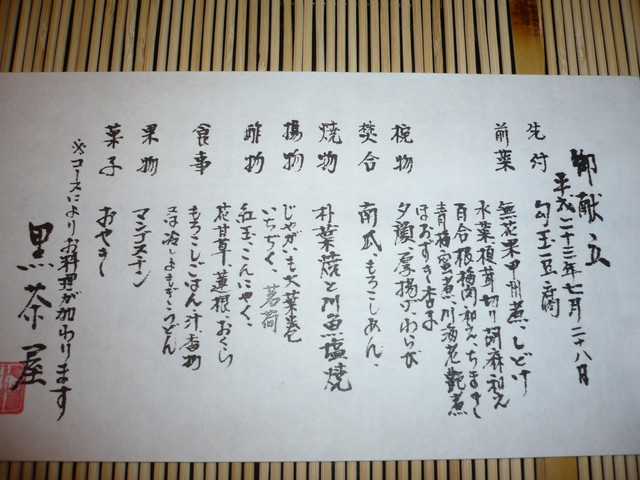 御献立
平成二十三年七月二十八月
先付 勾玉豆腐
前菜 無花果甲州煮、しどけ
水菜、榎茸切り胡麻和え
百合根梅肉和え、ちまき
青梅蜜煮、川海老艶煮
ほおずき杏子
椀物 夕顔、厚揚げ、わらび
焚合 南瓜、もろこしあん、
焼物 朴葉焼と川魚塩焼
揚物 じゃが芋大葉巻
いちぢく、茗荷
酢物 紅玉こんにゃく、
花甘草、蓮根、おくら
食事 もろこしごはん、汁、香物
又は冷しよもぎうどん
果物 マンゴスチン
菓子 おやき
※コースによりお料理が加わります
黒茶屋